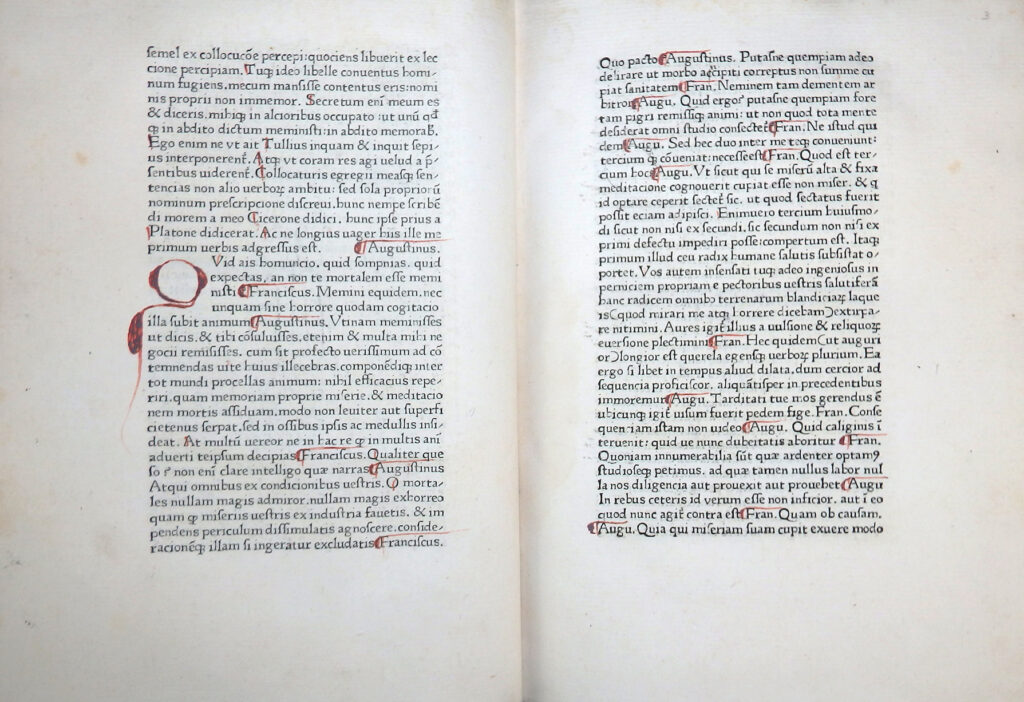 semel ex collocucõe percepi: quociens libuerit ex lec/
cione percipiam. Tuqꝫ ideo libelle conuentus homi/
num fugiens, mecum mansisse contentus eris: nomi
nis proprii non immemor. Secretum eni̅ meum es
& diceris. mihiqꝫ in alcioribus occupato: ut unũ qđ
qꝫ in abdito dictum meministi: in abdito memorab.
Ego enim ne vt ait Tullius inquam & inquit sepi/
us interponerent̃. Atqꝫ vt coram res agi uelud a p̃/
sentibus uiderent̃. Collocaturis egregii measqꝫ sen/
tencias non alio uerboꝝ ambitu: sed sola propriorũ
nominum prescripcione discreui. hunc nempe scribẽ
di morem a meo Cicerone didici. hunc ipse prius a
Platone didicerat. Ac ne longius uager hiis ille me
primum uerbis adgressus est. Augustinus.
QVid ais homuncio. quid sompnias. quid
expectas. an non te mortalem esse memi
nisti Franciscus. Memini equidem. nec
unquam sine horrore quodam cogitacio
illa subit animum Augustinus. Vtinam meminisses
ut dicis. & tibi cõsuluisses. etenim & multa mihi ne
gocii remisisses. cum sit profecto uerissimum ad cõ
temnendas uite huius illecebras. componẽdiqꝫ inter
tot mundi procellas animum: nihil efficacius repe/
riri. quam memoriam proprie miserie. & meditacio
nem mortis assiduam. modo non leuiter aut superfi
cietenus serpat. sed in ossibus ipsis ac medullis insi/
deat. At multũ uereor ne in hac re qꝫ in multis ani̅
aduerti teipsum decipias Franciscus. Qualiter que
so ꝛ non eni̅ clare intelligo quæ narras Augustinus
Atqui omnibus ex condicionibus uestris. O morta/
les nullum magis admiror. nullum magis exhorreo
quam qꝫ miseriis uestris ex industria fauetis. & im
pendens periculum dissimulatis agnoscere. conside/
racionẽqꝫ illam si ingeratur excludatis Franciscus.
Quo pacto Augustinus. Putasne quempiam adeo
delirare ut morbo accipiti correptus non summe cu
piat sanitatem Fran. Neminem tam dementem ar
bitror Augu. Quid ergo ꝛ putasne quempiam fore
tam pigri remissiqꝫ animi: ut non quod tota mente
desiderat omni studio consectet̃ Fran. Ne istud qui
dem Augu. Sed hec duo inter me teqꝫ conueniunt:
tercium qꝫ cõueniat: necesse est Fran. Quod est ter/
cium hoc Augu. Vt sicut qui se miserũ alta & fixa
meditacione cognouerit cupiat esse non miser. & q
id optare ceperit sectet̃ sic. ut quod sectatus fuerit
possit eciam adipisci. Enimuero tercium huiusmo/
di sicut non nisi ex secundi. sic secundum non nisi ex
primi defectu impediri posse: compertum est. Itaqꝫ
primum illud ceu radix humane salutis subsistat o/
portet. Vos autem insensati tuqꝫ adeo ingeniosus in
perniciem propriam e pectoribus uestris salutiferã
hanc radicem omnibꝰ terrenarum blandiciaꝝ laque
is (quod mirari me atqꝫ horrere dicebam) extirpa/
re nitimini. Aures igit̃ illius a uulsione & reliquoꝝ
euersione plectimini Fran. Hec quidem (ut auguri
or) longior est querela egensqꝫ uerboꝝ plurium. Ea
ergo si libet in tempus aliud dilata. dum cercior ad
sequencia proficiscor. aliquãtisper in precedentibus
immoremur Augu. Tarditati tue mos gerendus ẽ
ubicunqꝫ igit̃ uisum fuerit pedem fige. Fran. Conse
quenciam istam non uideo Augu. Quid caliginis i
teruenit: quid ue nunc dubietatis aboritur Fran.
Quoniam innumerabilia sũt quæ ardenter optamꝰ
studioseqꝫ petimus. ad quæ tamen nullus labor nul
la nos diligencia aut prouexit aut prouehet Augu
In rebus ceteris id verum esse non inficior. aut i eo
quod nunc agit̃ contra est Fran. Quam ob causam.
Augu. Quia qui miseriam suam cupit exuere modo